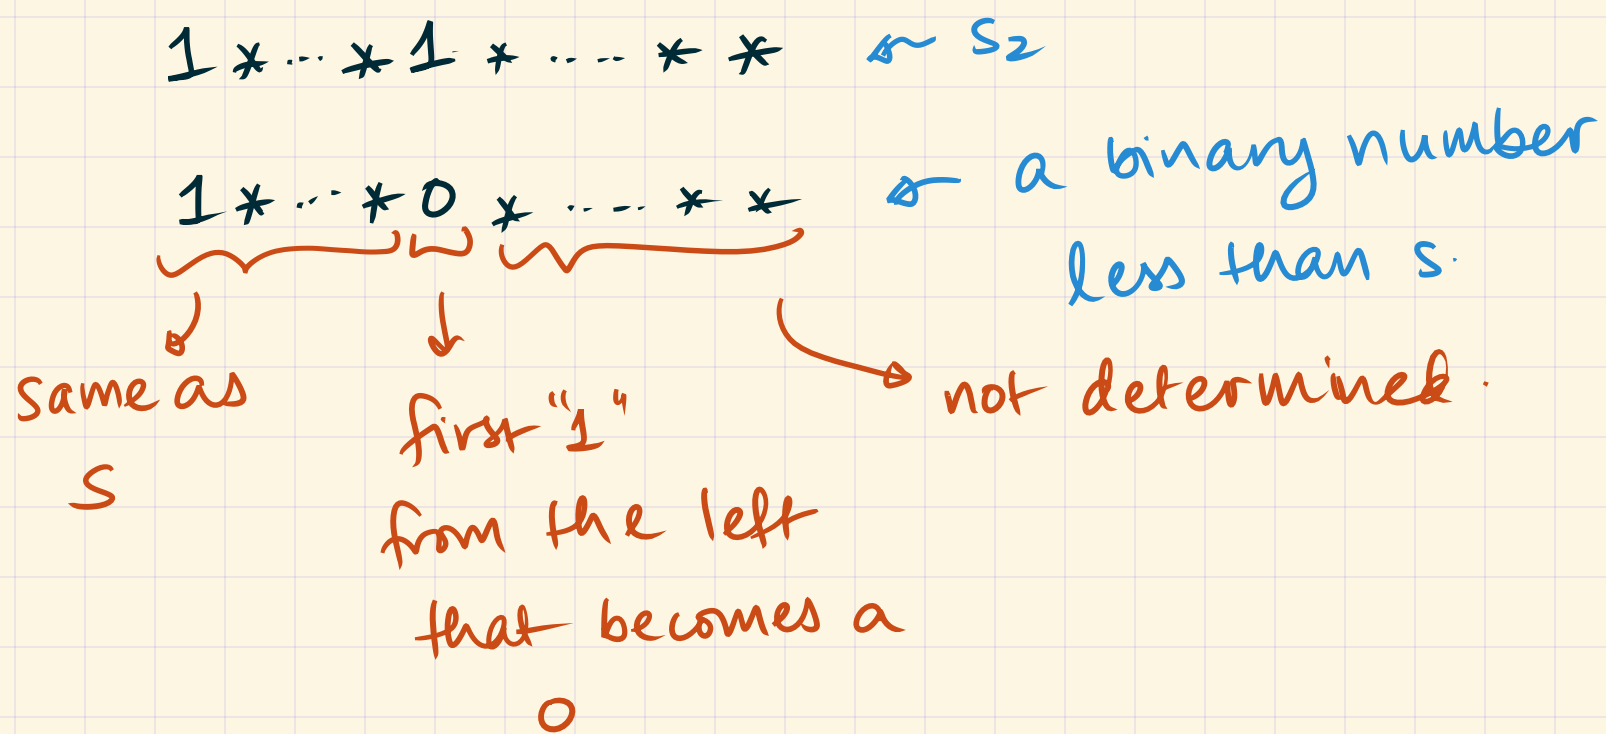 1 * ... * 1 * .... * * ← S2
1 * ... * 0 * .... * * ← a binary number
less than s.
same as
s
first "1"
from the left
that becomes a
0
not determined.